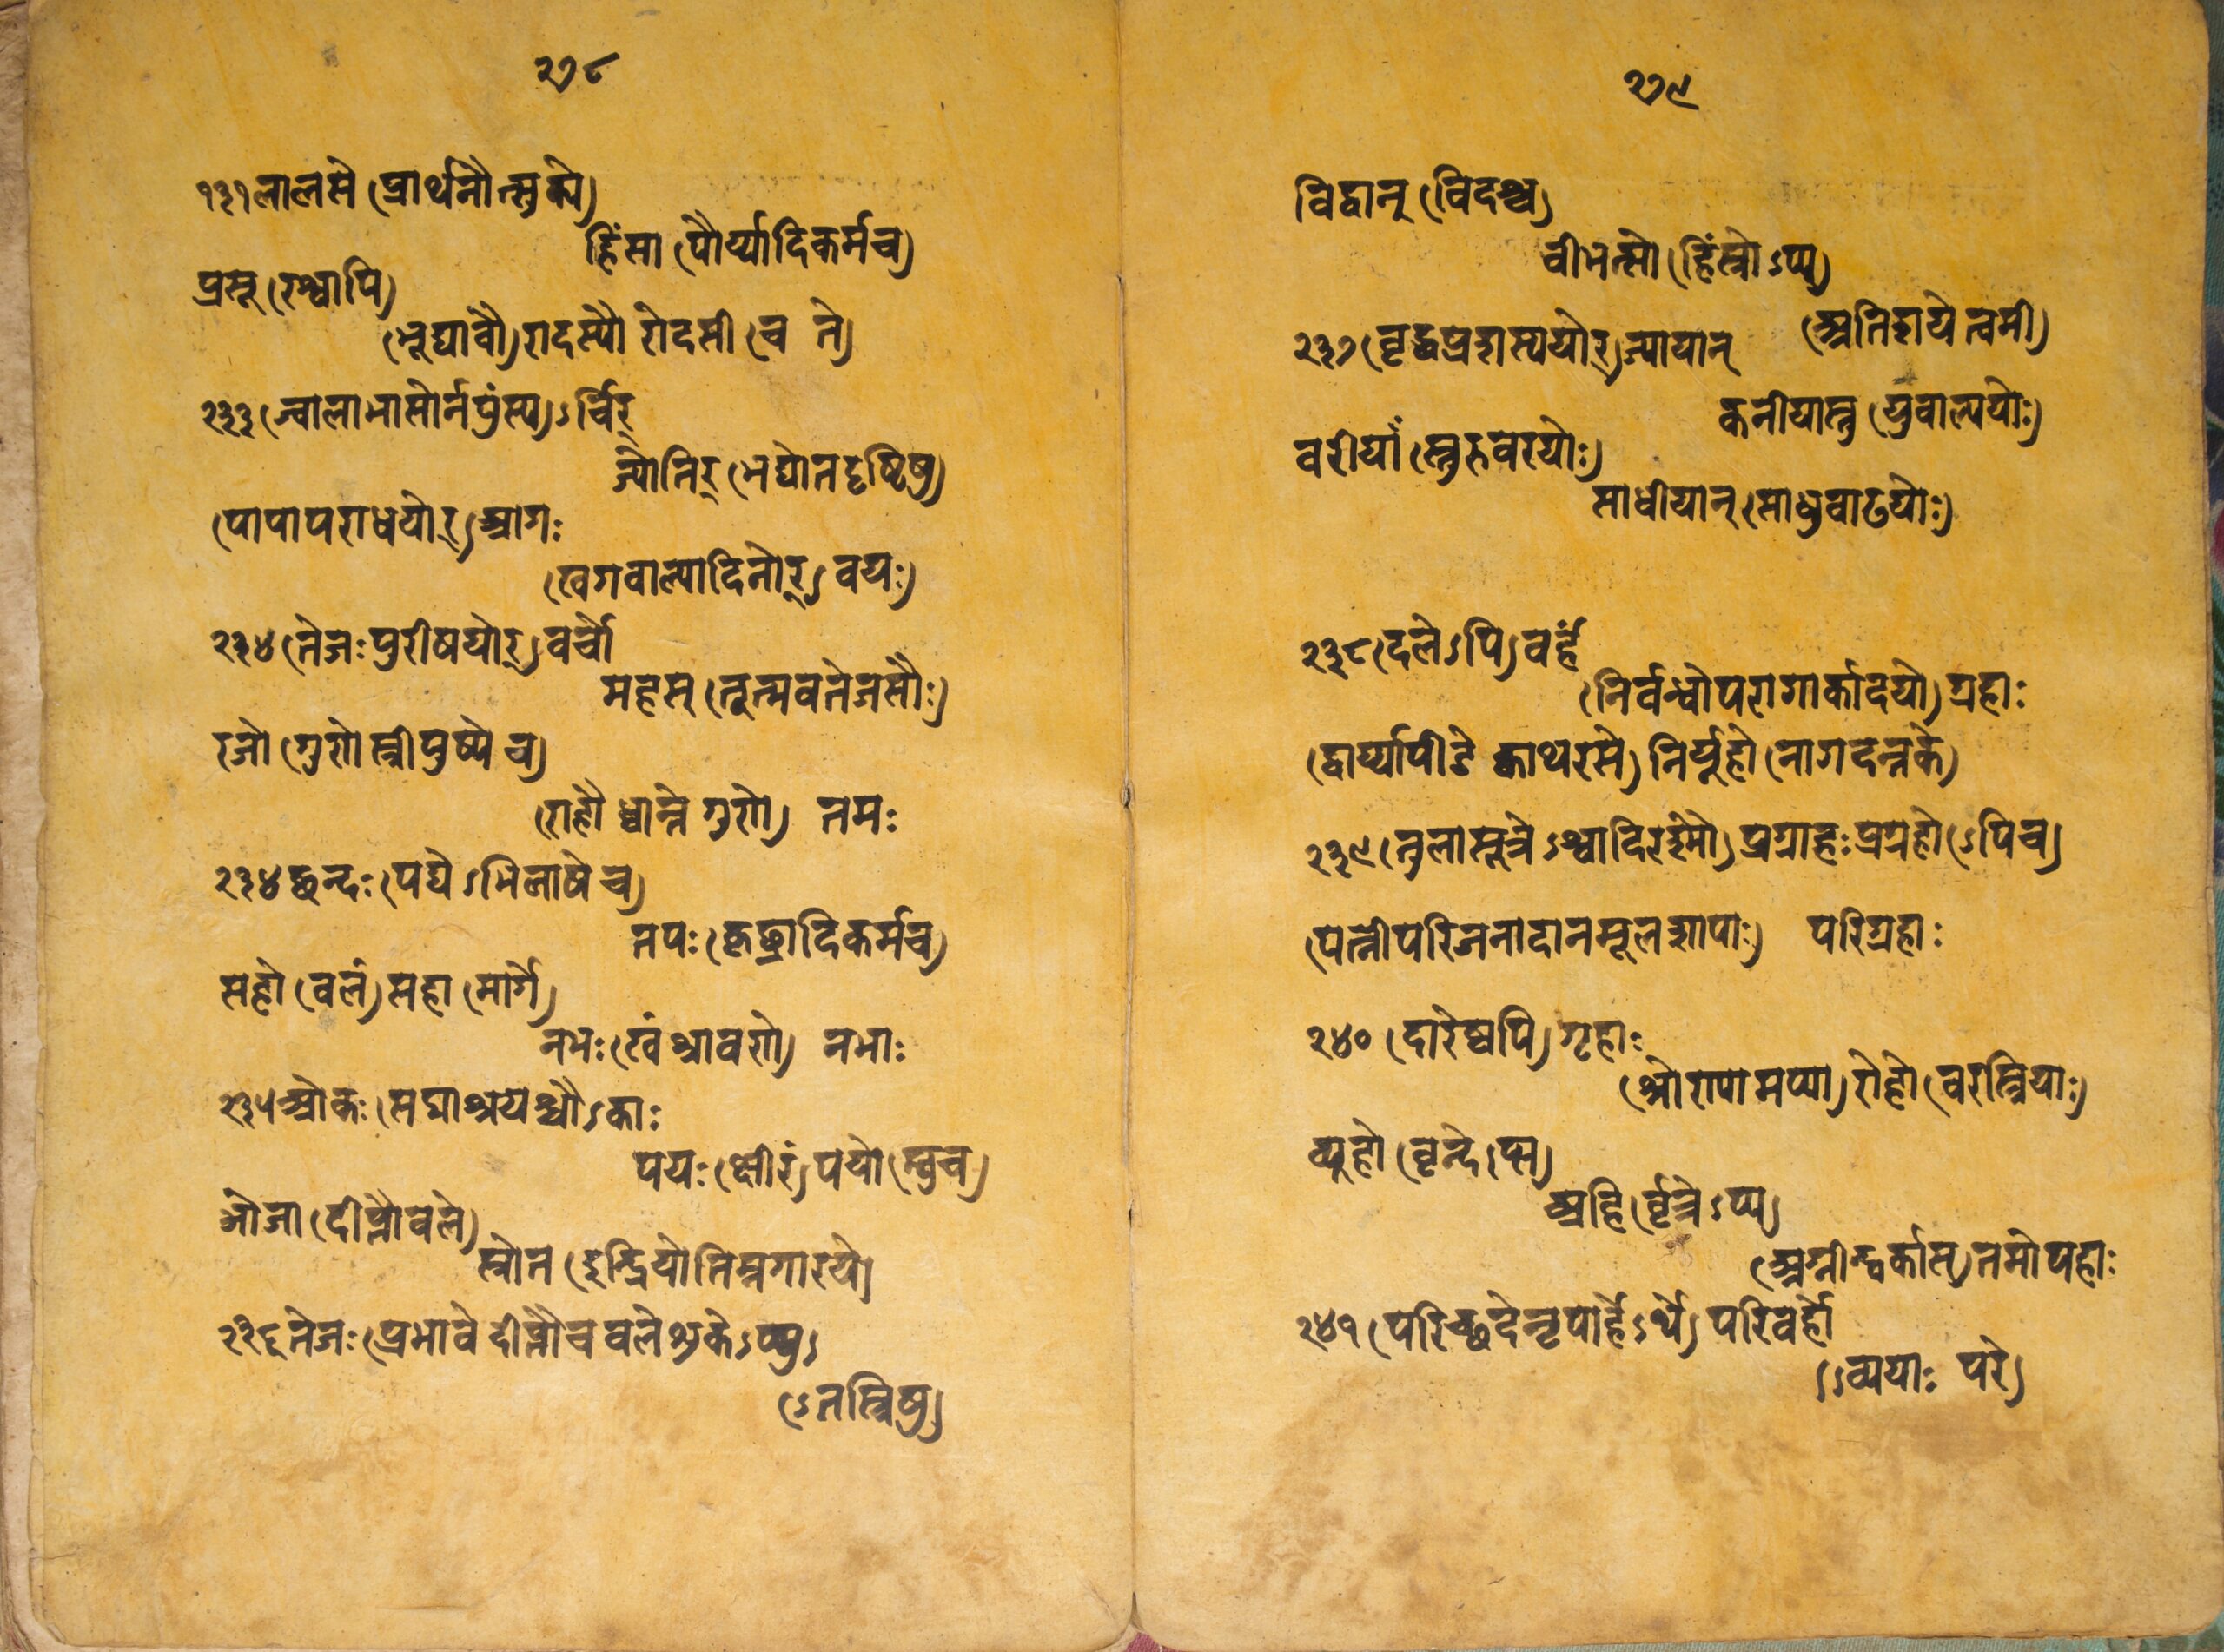 २७८
१३१ लालसे (प्रार्थनौत्सुक्ये)
हिंसा (चौर्य्यादिकर्मच)
प्रसू (रश्वापि)
(भूद्यावौ) रोदस्यौ रोदसी (च ते)
२३३ (ज्वालाभासोर्नपुंस्य) ऽर्चिर्
ज्योतिर् (भेद्योतदृष्टिषु)
(पापापराधयोर्) आगः
(खगवाल्यादिनोर्) वयः)
२३४ (तेजःपुरीषयोर्) वर्चो
महस् (तूत्सवतेजसोः)
रजो (गुणे स्त्रीपुष्पे च)
(राहौ ध्वान्ते गुणे) तमः
२३४ छन्दः (पद्ये ऽभिलाषे च)
तपः (कृच्छ्रादिकर्मच)
सहो (वलं) सहा (मार्गे)
नभः (खं श्रावणे) नभाः
२३५ ओकः (सद्माश्रयश्चौ ऽकाः
पयः (क्षीरं) पयो (म्बुच)
ओजो (दीप्तौवले)
स्त्रोत (इन्द्रियेनिम्नगारये)
२३६ तेजः (प्रभावे दीप्तौचवलेशुक्रेऽप्य)ऽ
(ऽतस्त्रिषु)
२७९
विद्वान् (विदश्च)
वीभत्सो (हिंस्त्रोऽप्य)
(अतिशये त्वमी)
२३७ (वृद्धप्रशस्ययोर्) ज्यायान्
कनीयास्तु (युवाल्पयोः)
वरीयां (स्तुरुवरयोः)
साधीयान् (साधुवाढयोः)
२३८ (दलेऽपि) वर्हं
(निर्वन्धोपरागार्कादयो) ग्रहाः
(द्वार्य्यापीडे क्वाथरसे) निर्यूहो (नागदन्तके)
२३९ (तुलासूत्रेऽश्वादिरश्मौ) प्रग्राहः प्रग्रहो (ऽपिच)
(पत्नीपरिजनादानमूलशापाः) परिग्रहाः
२४० (दारेष्वपि) गृहाः
(श्रोणामप्या) रोहो (वरस्त्रियाः)
व्यूहो (वृन्देप्य)
अहि (र्वृत्रेऽप्य)
(अग्नीन्द्वर्कास्) तमोपहाः
२४१ (परिच्छदेनृपार्हेऽर्थे) परिवर्हो
(ऽव्ययाः परे)